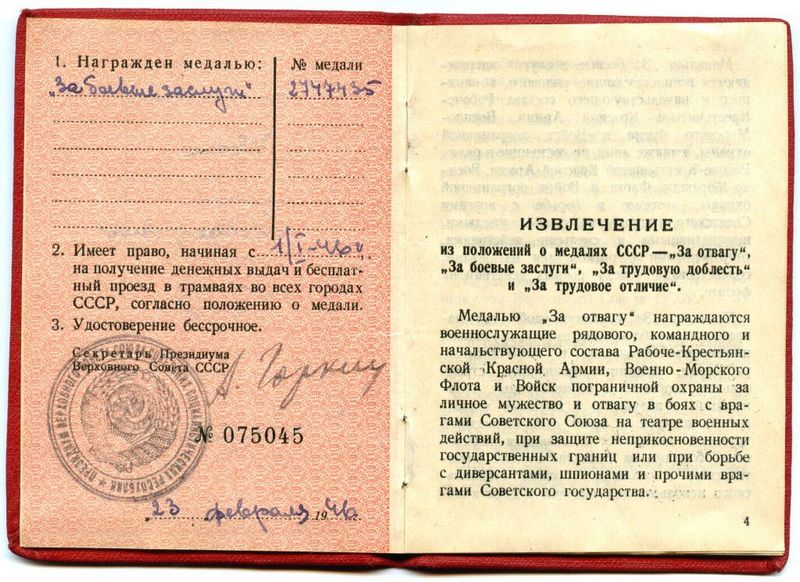 1. Награжден медалью:
№ медали
„За боевые заслуги"
2747435
2. Имеет право, начиная с 1/I-46г.
на получение денежных выдач и бесплат-
ный проезд в трамваях во всех городах
СССР, согласно положению о медали.
3. Удостоверение бессрочное.
Секретарь Президиума
Верховного Совета СССР
А Горкин
№ 075045
„23 февраля 1946
ИЗВЛЕЧЕНИЕ
из положений о медалях СССР—„За отвагу",
„За боевые заслуги", „За трудовую доблесть"
и „За трудовое отличие".
Медалью „За отвагу" награждаются
военнослужащие рядового, командного и
начальствующего состава Рабоче-Крестьян-
ской Красной Армии, Военно-Морского
Флота и Войск пограничной охраны за
личное мужество и отвагу в боях с вра-
гами Советского Союза на театре военных
действий, при защите неприкосновенности
государственных границ или при борьбе
с диверсантами, шпионами и прочими вра-
гами Советского государства.
4